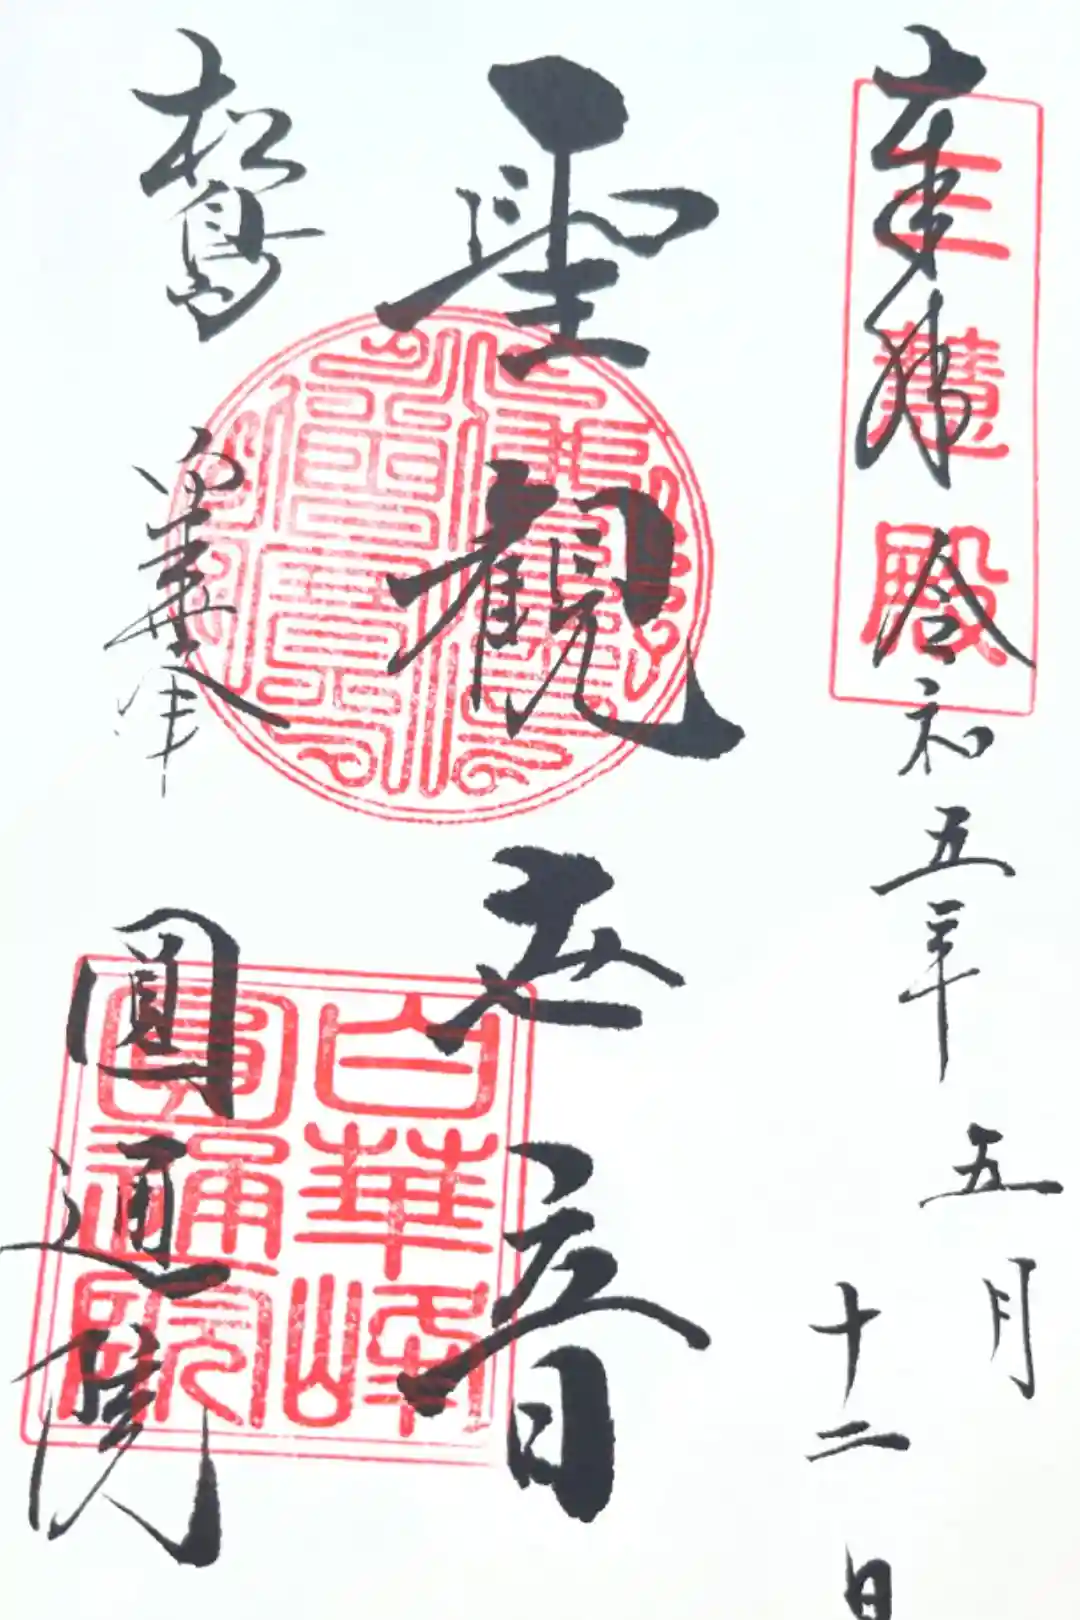 奉拝
令和五年
五月
十二日
三慧殿
聖観世音
松島
白華峯
圓通院
白華峰
圓通院